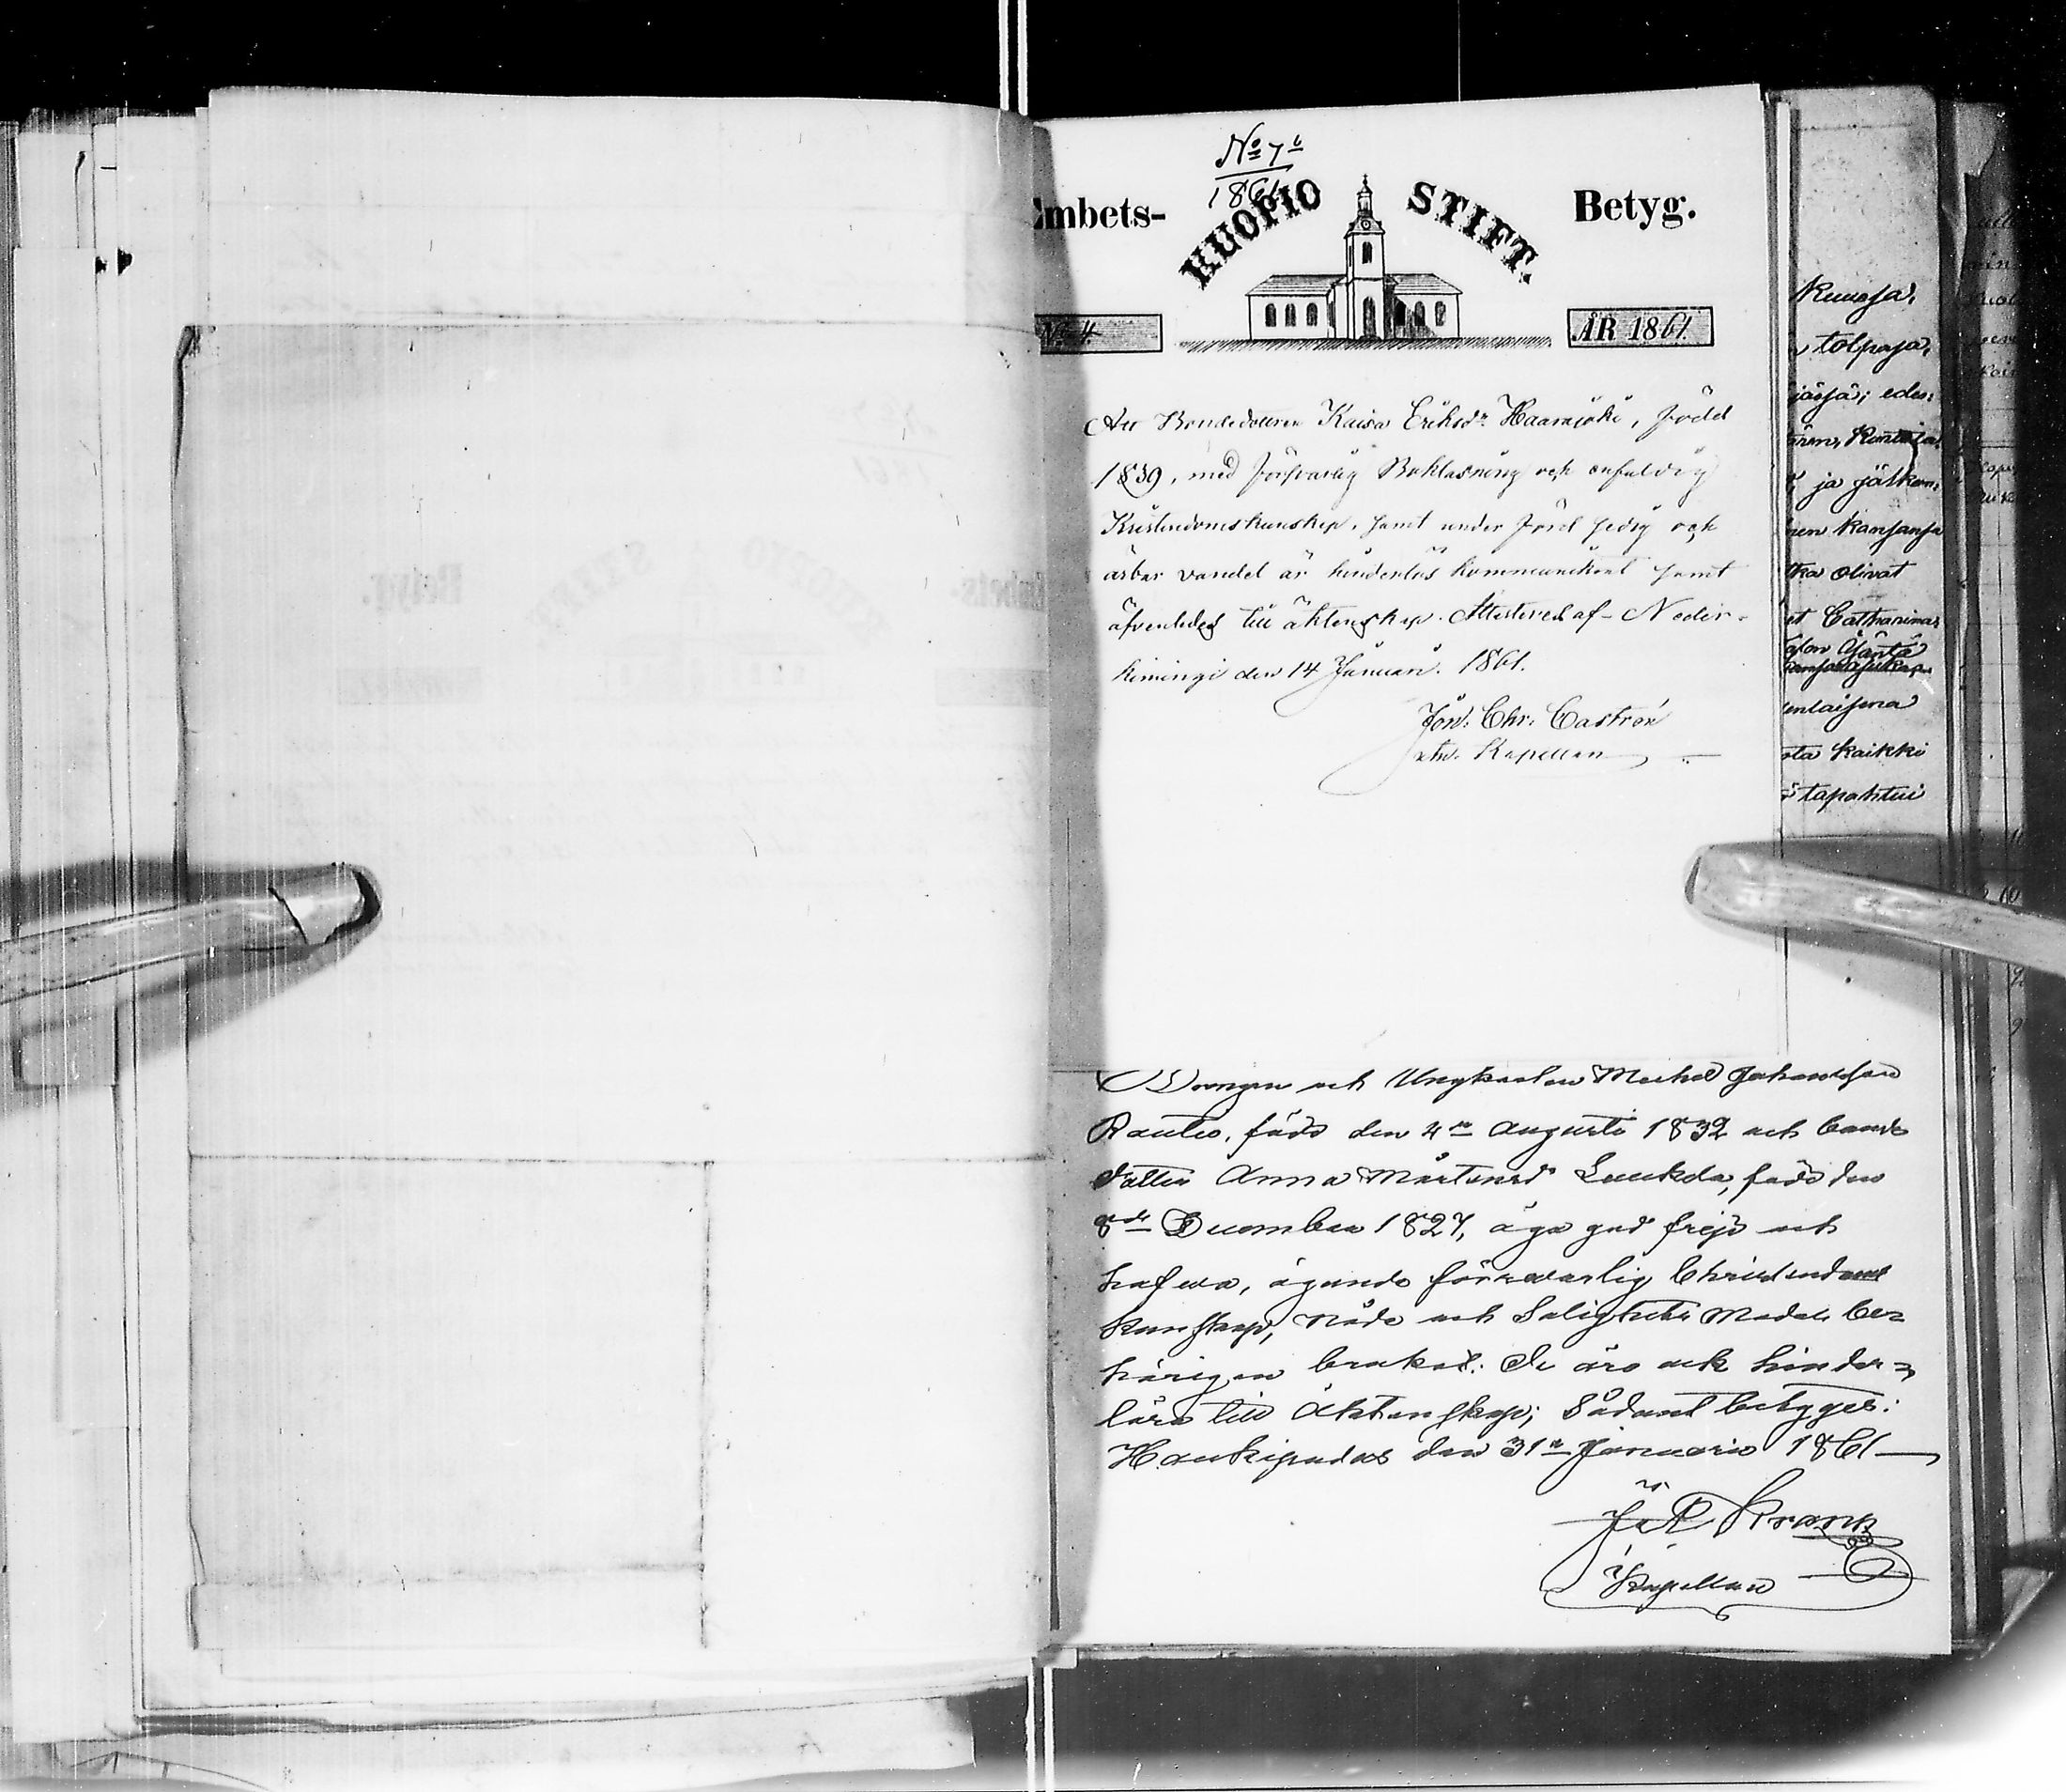 No 7 b
1861
Embets-
KUOPIO STIFT.
Betyg.
No 4.
ÅR 1861.
Att Bondedottren Kaisa Eriksdr Haarajoki, född
1839, med försvarlig Bokläsning och enfaldig
Kristendomskunskap, samt under förd sedig och
ärbar vandel är hinderlös kommunikant samt
äfvenledes till äktenskap. Attesteras af - Neder-
kiminge den 14 Januari. 1861.
Joh. Chr. Castrén
Kapellan
Drengen och Ungkarlen Michel Johansson
Rautio, född den 4de Augusti 1832 och bonde
dotter Anna Mårtensdr Luukela, född den
8de December 1827, äga god frejd och
hafwa, ägande förswarlig Christendoms
kunskap, Nåde och Salighets Medel be-
hörigen brukat. De äro ock hinder-
lösa till Äktenskap; Sådant betyges:
Haukipudas den 31ste Januarii 1861
Krank
Kapellan
tolpaja,
edes-
ja jälken-
kansansa
olivat
Catharinas
kaikki
tapahtui